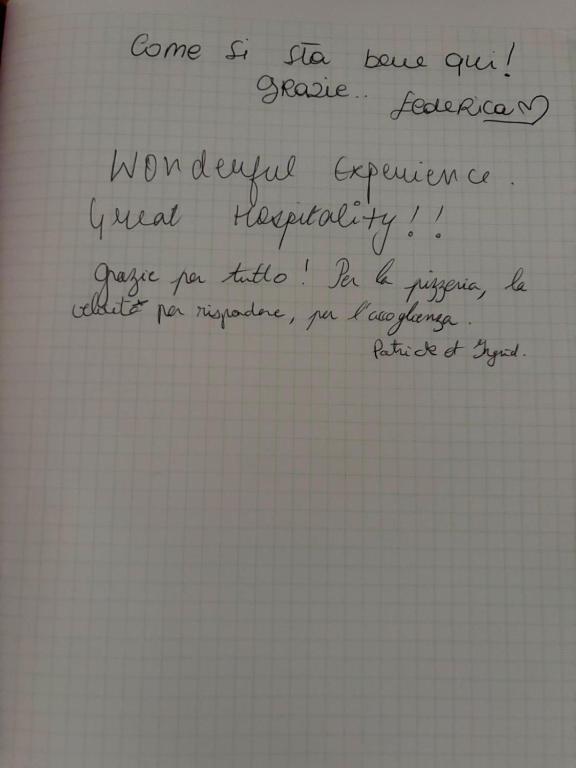 Come si sta bene qui!
Grazie..
Federica
Wonderful Experience.
Great Hospitality!!
Grazie per tutto! Per la pizzeria, la
velocità per rispondere, per l'accoglienza.
Patrick et Ingrid.